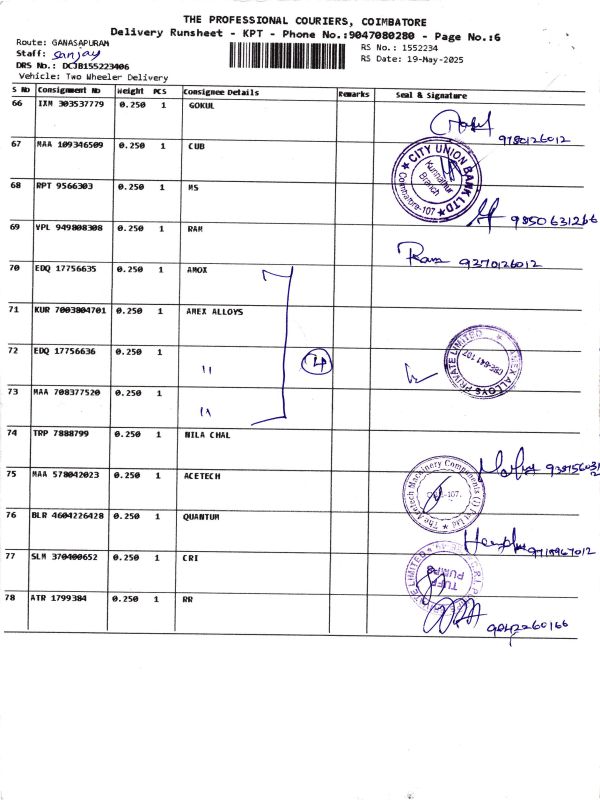 THE PROFESSIONAL COURIERS, COIMBATORE
Delivery Runsheet - KPT - Phone No.:9047080280 - Page No.:6
Route: GANASAPURAM
RS No.: 1552234
Staff: Sanjay
RS Date: 19-May-2025
DRS No.: DCJB155223406
Vehicle: Two Wheeler Delivery
S No Consignment No Weight PCS Consignee Details Remarks Seal & Signature
66 IXM 303537779 0.250 1 GOKUL
9780126012
67 MAA 109346509 0.250 1 CUB
CITY UNION BANK LTD
Kunnathur Branch
Coimbatore-107
68 RPT 9566303 0.250 1 MS
9850631266
69 VPL 949808308 0.250 1 RAM
Ram 9370126012
70 EDQ 17756635 0.250 1 AMOX
71 KUR 7003804701 0.250 1 AMEX ALLOYS
72 EDQ 17756636 0.250 1 "
4
AMEX ALLOYS PRIVATE LIMITED
CBE-641 107
73 MAA 708377520 0.250 1 "
74 TRP 7888799 0.250 1 NILA CHAL
75 MAA 578042023 0.250 1 ACETECH
The Acetech Machinery Components (I) Pvt Ltd
76 BLR 4604226428 0.250 1 QUANTUM
9715967012
77 SLM 370400652 0.250 1 CRI
TUFF PUMPS
78 ATR 1799384 0.250 1 RR